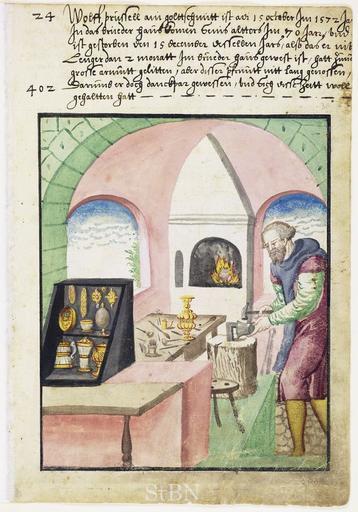 24 Wolff prüssell ain goltschmitt ist adi 15 october Im 1572 Ja
In das brueder hauß komen seins alters Im 70 Jar, und
ist gestorben den 15 december desselben Jars, also das er nit
lenger dan 2 monatt Im brueder hauß gewest ist, hatt
grosse armutt gelitten, aber disser pfruntt nit lang genossen,
402 Darums er doch danckbar gewessen, und sich disse zeitt woll
gehaltten hatt
StBN